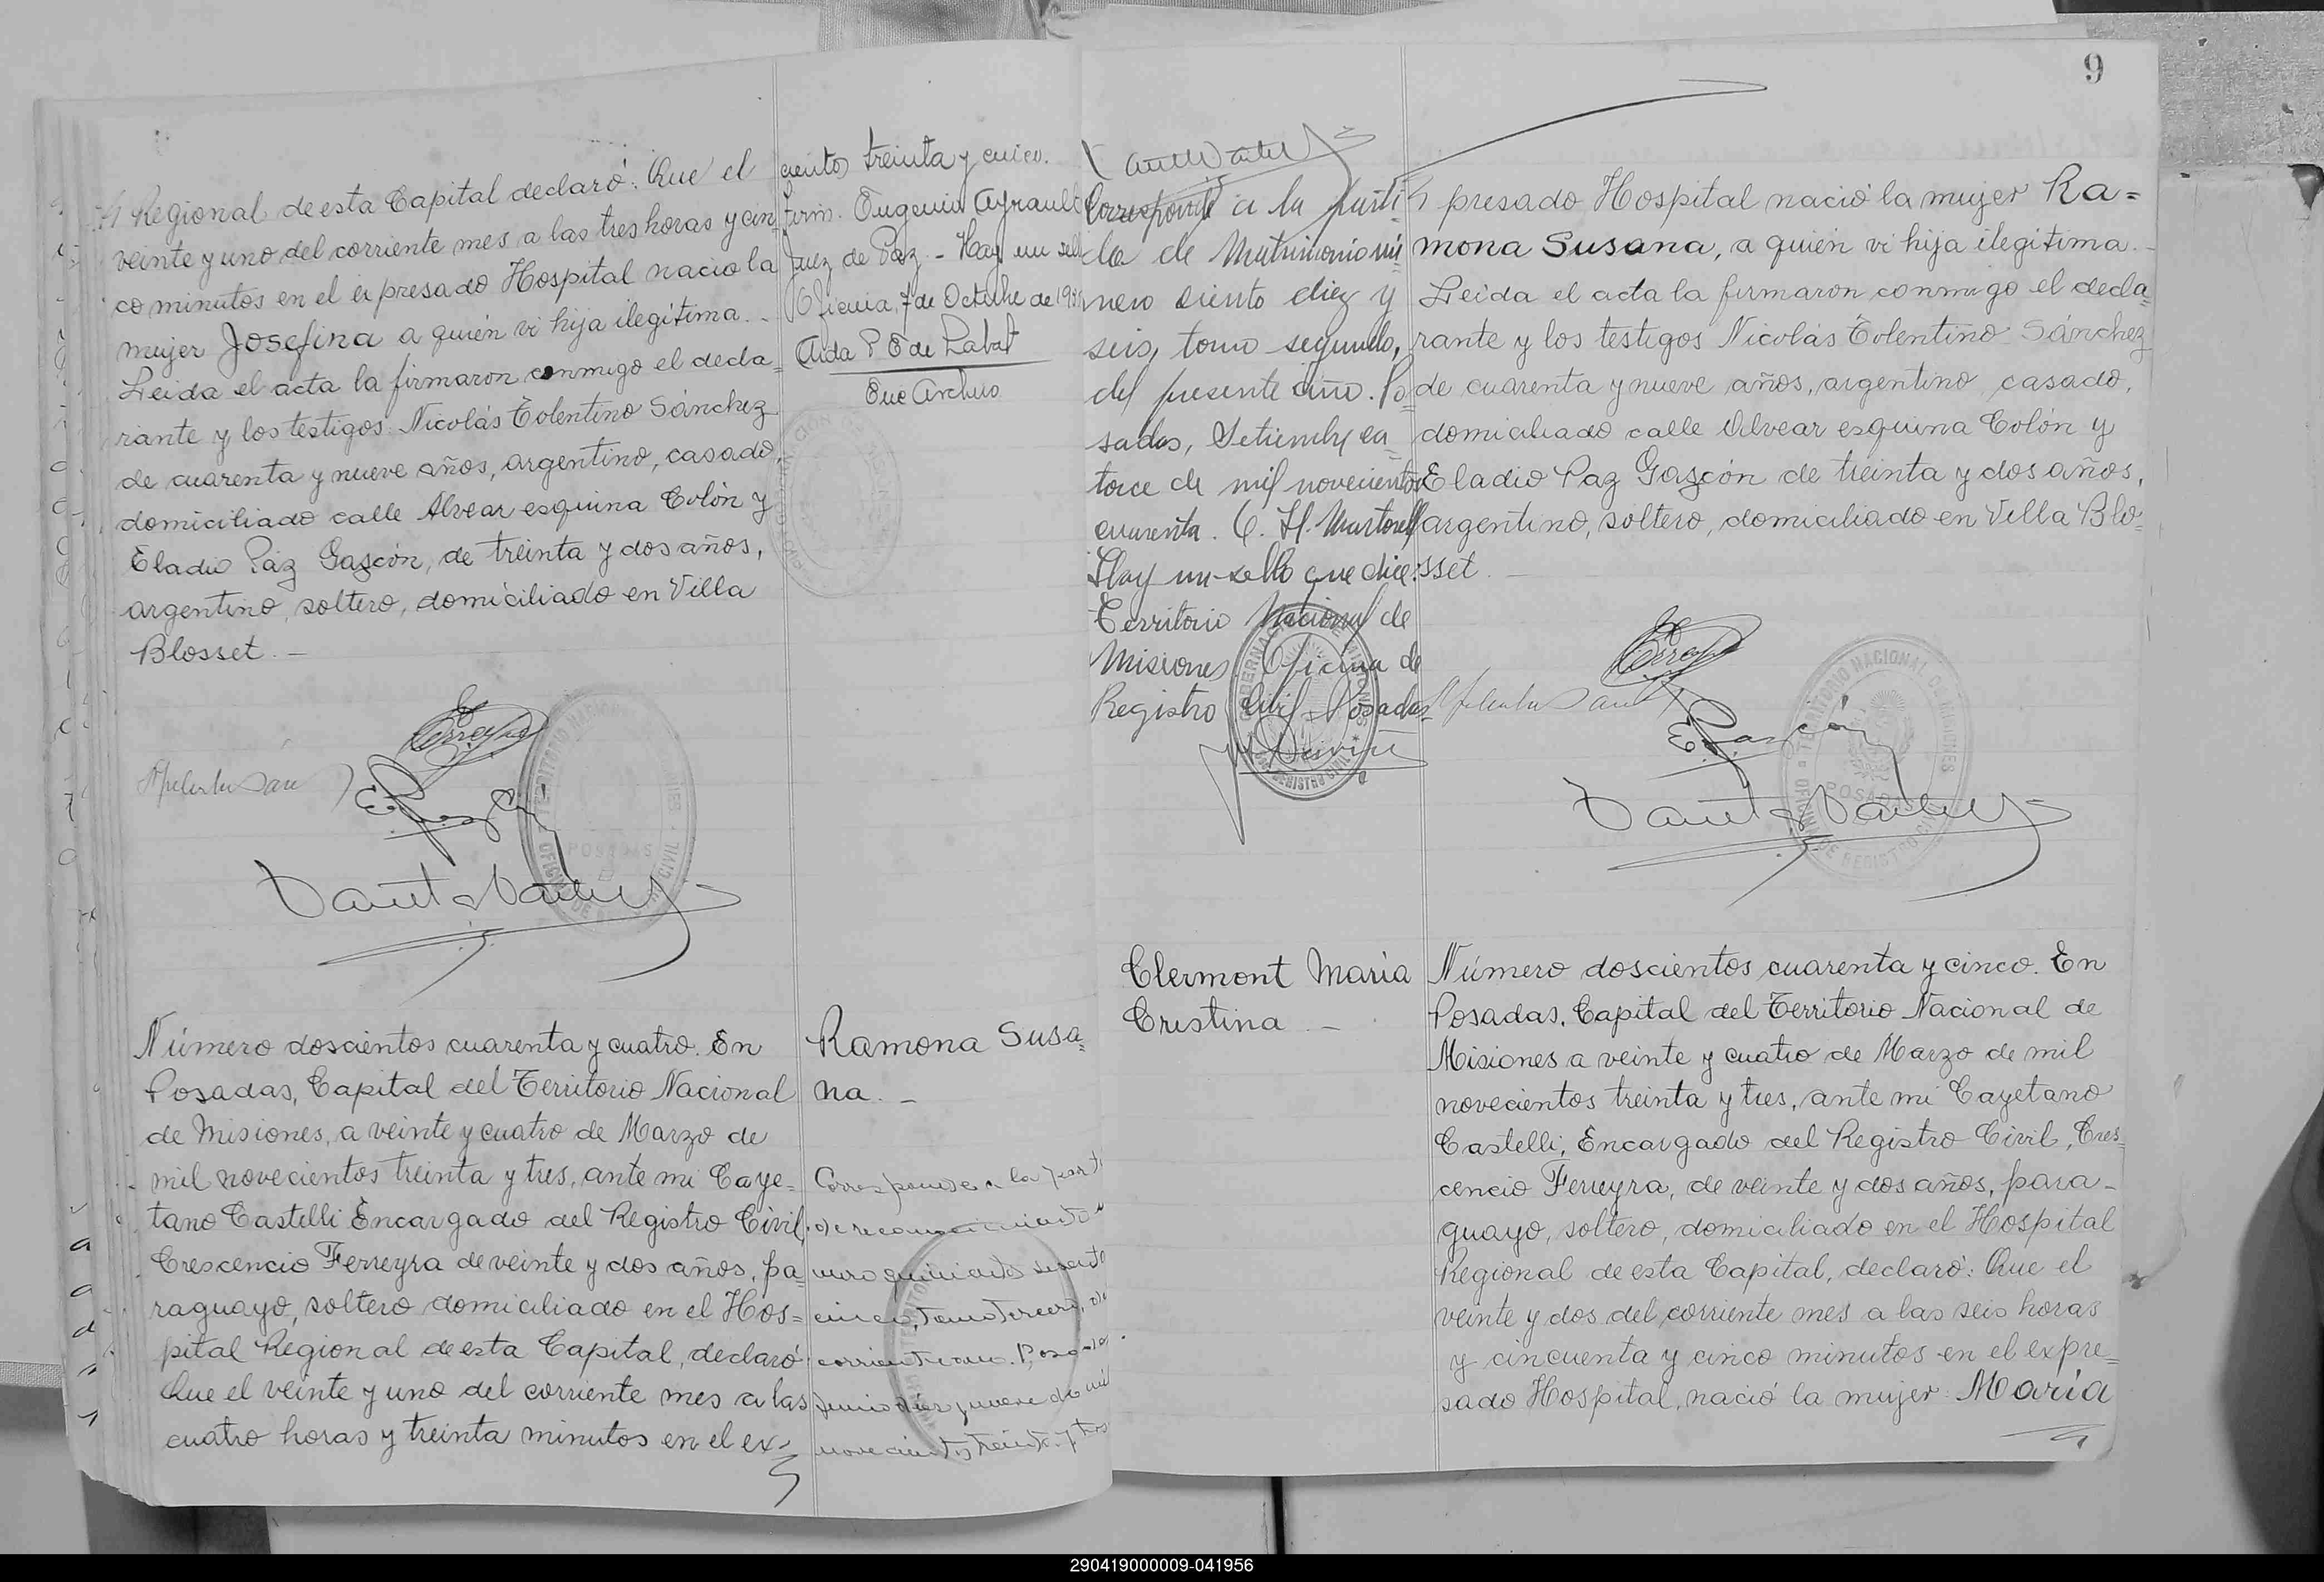 Regional de esta Capital declaró: Que el
veinte y uno del corriente mes a las tres horas y cin
co minutos en el expresado Hospital nació la
mujer Josefina a quién vi hija ilegítima. -
Leida el acta la firmaron conmigo el decla=
rante y los testigos Nicolás Tolentino Sánchez
de cuarenta y nueve años, argentino, casado,
domiciliado calle Alvear esquina Colón y
Eladio Paz Gascón, de treinta y dos años,
argentino, soltero, domiciliado en Villa
Blosset. -
Número doscientos cuarenta y cuatro. En
Posadas, Capital del Territorio Nacional
de Misiones, a veinte y cuatro de Marzo de
mil novecientos treinta y tres, ante mi Caye=
tano Castelli Encargado del Registro Civil,
Crescencio Ferreyra de veinte y dos años, pa=
raguayo, soltero domiciliado en el Hos=
pital Regional de esta Capital, declaró:
Que el veinte y uno del corriente mes a las
cuatro horas y treinta minutos en el ex=
ciento treinta y cinco.
firm. Eugenio Ayrault
Juez de Paz - Hay un sello
Oficina, 7 de Octubre de
Aida P E de Labat
Enc Archivo
Ramona Susa=
na. -
Corresponde a la
de reconocimiento
mero quinientos
cinco, tomo tercero, de
corriente año. Posadas
Junio diez y nueve de mil
novecientos treinta y tres
9
Corresponde a la parti=
da de Matrimonio nú=
mero siento diez y
seis, tomo segundo,
del presente año. Po=
sadas, Setiembre ca=
torce de mil novecientos
cuarenta. C. H. Martorell
Hay un sello que dice:
Territorio Nacional de
Misiones. Oficina de
Registro Civil - Posadas
Clermont María
Cristina -
presado Hospital nació la mujer Ra=
mona Susana, a quién vi hija ilegítima. -
Leida el acta la firmaron conmigo el decla=
rante y los testigos Nicolás Tolentino Sánchez
de cuarenta y nueve años, argentino, casado,
domiciliado calle Alvear esquina Colón y
Eladio Paz Gascón de treinta y dos años,
argentino, soltero, domiciliado en Villa Blo=
sset. -
TERRITORIO NACIONAL DE MISIONES
POSADAS
OFICINA DE REGISTRO CIVIL
Número doscientos cuarenta y cinco. En
Posadas, Capital del Territorio Nacional de
Misiones a veinte y cuatro de Marzo de mil
novecientos treinta y tres, ante mi Cayetano
Castelli, Encargado del Registro Civil, Cres=
cencio Ferreyra, de veinte y dos años, para-
guayo, soltero, domiciliado en el Hospital
Regional de esta Capital, declaró: Que el
veinte y dos del corriente mes a las seis horas
y cincuenta y cinco minutos en el expre=
sado Hospital, nació la mujer: María
290419000009-041956